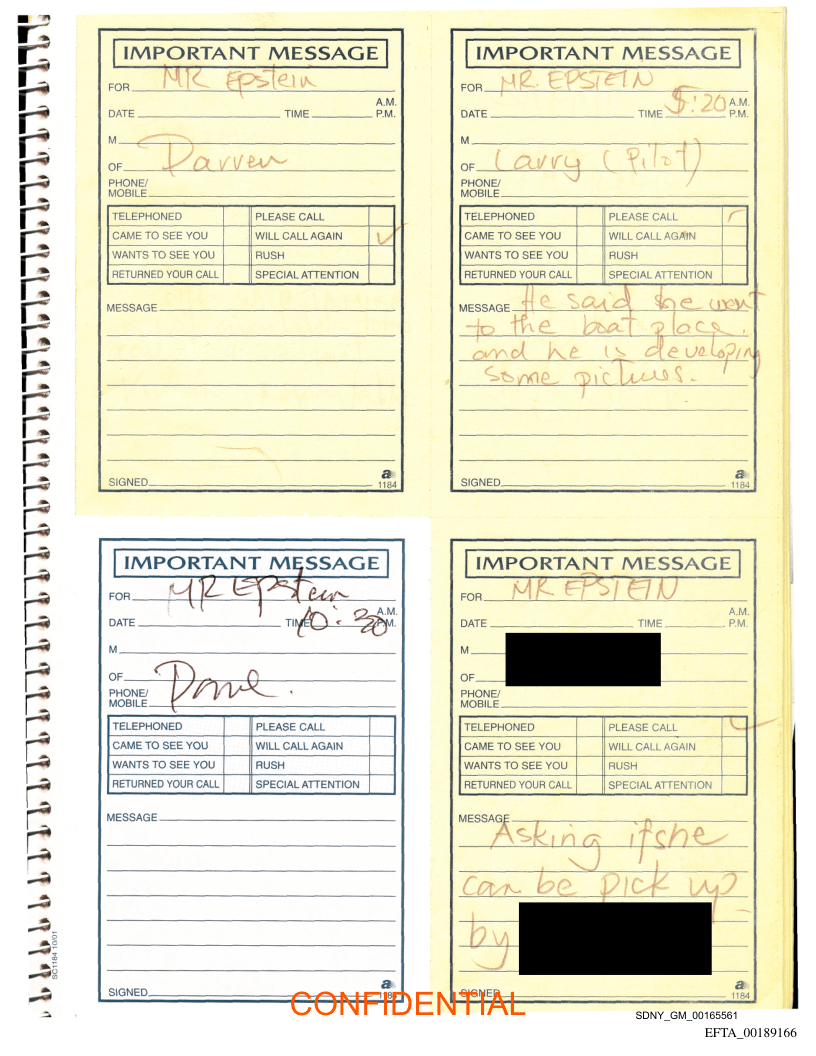 IMPORTANT MESSAGE
FOR MR Epstein
A.M.
DATE TIME P.M.
M
OF Darren
PHONE/
MOBILE
TELEPHONED PLEASE CALL
CAME TO SEE YOU WILL CALL AGAIN ✓
WANTS TO SEE YOU RUSH
RETURNED YOUR CALL SPECIAL ATTENTION
MESSAGE
SIGNED
a
1184
IMPORTANT MESSAGE
FOR MR. EPSTEIN
A.M.
DATE TIME 5:20 P.M.
M
OF Larry (Pilot)
PHONE/
MOBILE
TELEPHONED PLEASE CALL
CAME TO SEE YOU WILL CALL AGAIN
WANTS TO SEE YOU RUSH
RETURNED YOUR CALL SPECIAL ATTENTION
MESSAGE He said she went
to the boat place.
and he is developing
some pictures.
SIGNED
a
1184
IMPORTANT MESSAGE
FOR MR Epstein
A.M.
DATE TIME 10:30 P.M.
M
OF
PHONE/
MOBILE
TELEPHONED PLEASE CALL
CAME TO SEE YOU WILL CALL AGAIN
WANTS TO SEE YOU RUSH
RETURNED YOUR CALL SPECIAL ATTENTION
MESSAGE
SIGNED
a
1184
IMPORTANT MESSAGE
FOR MR EPSTEIN
A.M.
DATE TIME P.M.
M
OF
PHONE/
MOBILE
TELEPHONED PLEASE CALL ✓
CAME TO SEE YOU WILL CALL AGAIN
WANTS TO SEE YOU RUSH
RETURNED YOUR CALL SPECIAL ATTENTION
MESSAGE
Asking if she
can be pick up
by
SIGNED
a
1184
SC1184 10/01
CONFIDENTIAL
SDNY_GM_00165561
EFTA_00189166